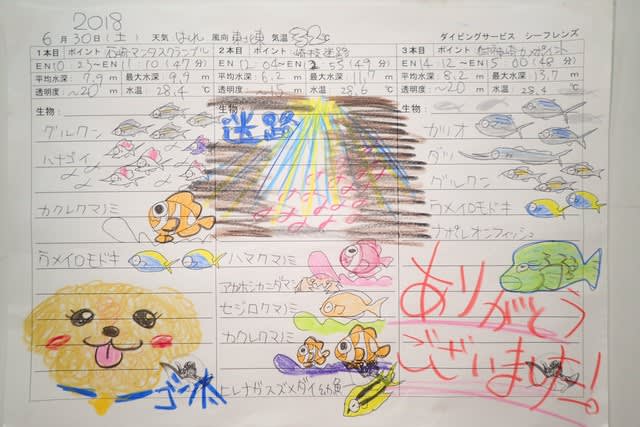 2018
6月30日(土) 天気 はれ 風向 東～東 気温 32℃ ダイビングサービス シーフレンズ
1本目 ポイント 石崎・マンタスクランブル
EN 10:23～11:10 (47分)
平均水深: 7.9m 最大水深 9.9m
透明度: ~20m 水温: 28.4℃
生物:
グルクン
ハナゴイ
カクレクマノミ
ウメイロモドキ
ゴン太
2本目 ポイント 崎枝迷路
EN 12:04～EN 2:53 (49分)
平均水深: 6.2m 最大水深: 11.7m
透明度: ~15m 水温: 28.6℃
生物:
迷路
ハマクマノミ
アカホシカニダマシ
セジロクマノミ
カクレクマノミ
ヒレナガスズメダイ幼魚
3本目 ポイント
EN 14:12～15:00 (48分)
平均水深: 8.2m 最大水深: 13.7m
透明度: ~20m 水温: 28.4℃
生物:
カツオ
ダツ
グルクン
ウメイロモドキ
ナポレオンフィッシュ
ありがとう
ございました!